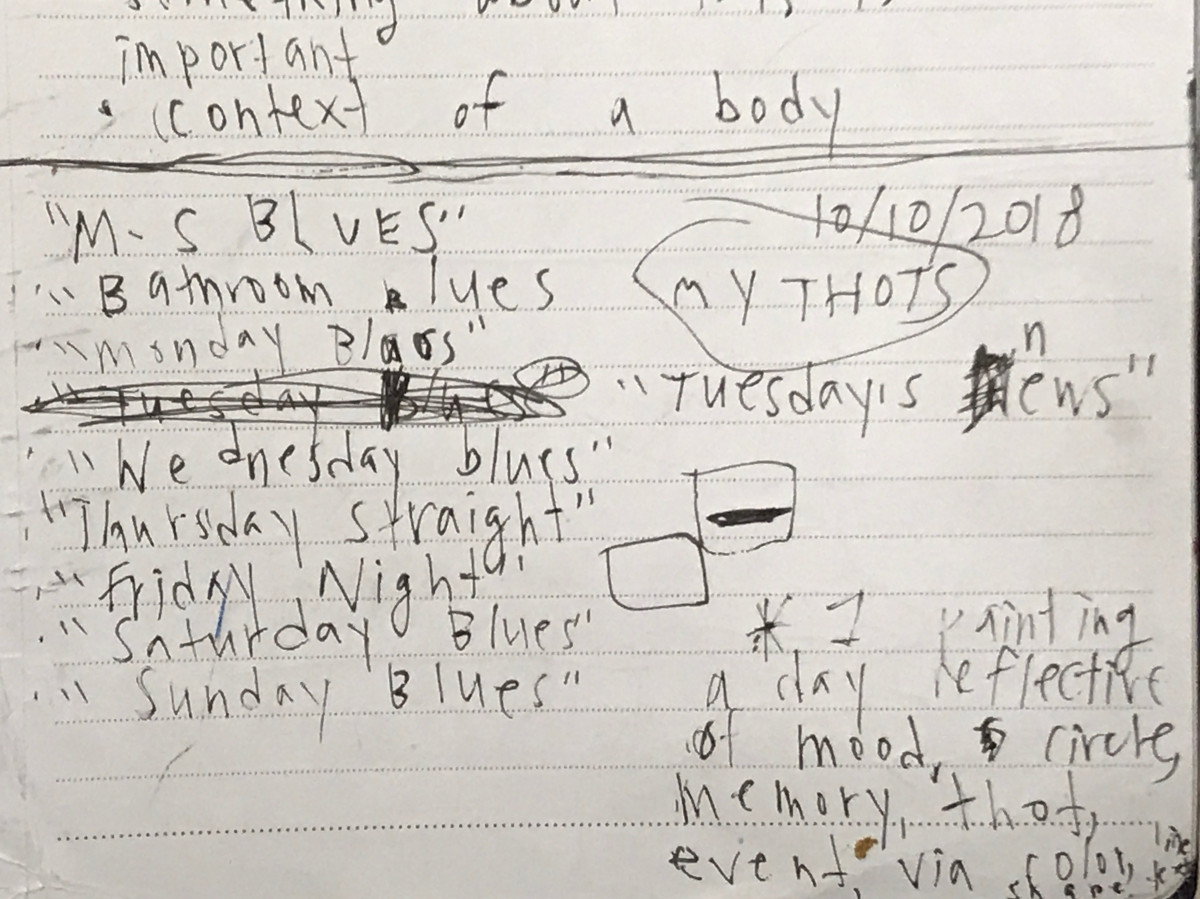 important
• (context of a body
"M-S BLUES"
10/10/2018
"Bathroom blues
MY THOTS
"Monday Blues"
"Tuesday Blues"
"Tuesday's news"
"Wednesday blues"
"Thursday straight"
"Friday Night"
"Saturday Blues"
"Sunday Blues"
* 1 painting
a day reflective
of mood, circle,
memory, thot,
event, via color, line
shape